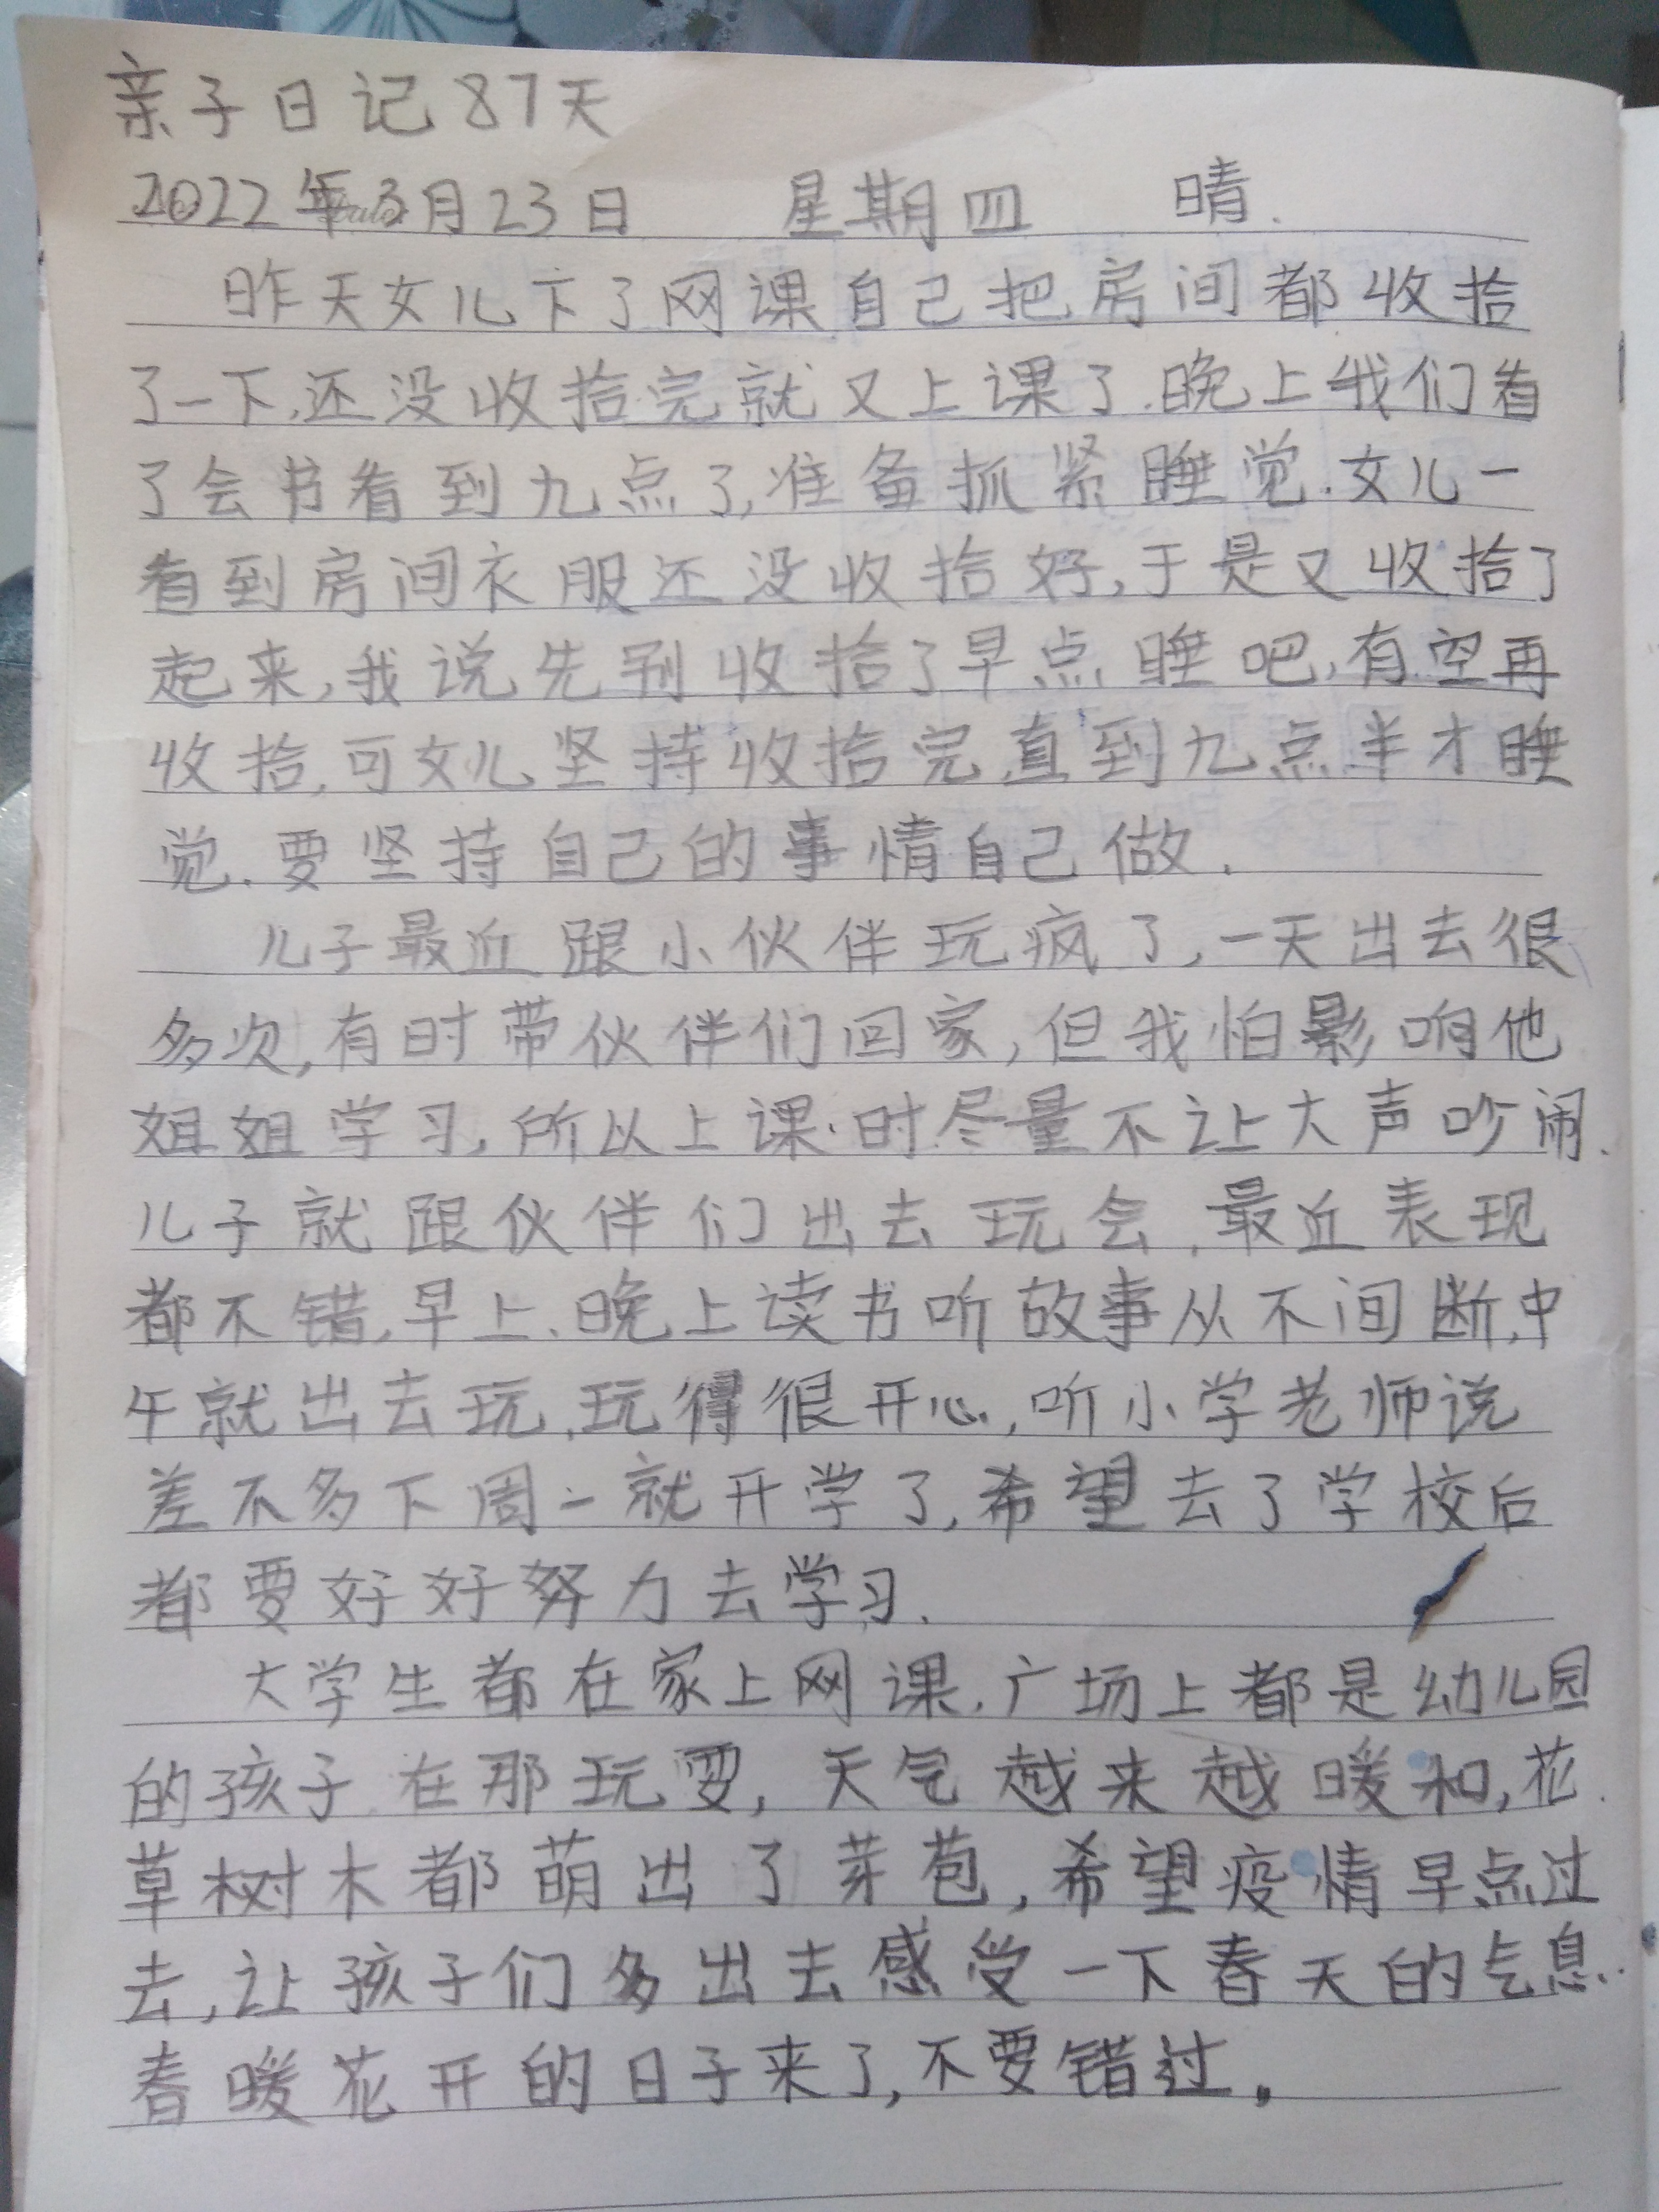 亲子日记87天
2022年3月23日 星期四 晴.
昨天女儿下了网课自己把房间都收拾
了一下,还没收拾完就又上课了.晚上我们看
了会书看到九点了,准备抓紧睡觉.女儿一
看到房间衣服还没收拾好,于是又收拾了
起来,我说先别收拾了早点睡吧,有空再
收拾,可女儿坚持收拾完,直到九点半才睡
觉.要坚持自己的事情自己做.
儿子最近跟小伙伴玩疯了,一天出去很
多次,有时带伙伴们回家,但我怕影响他
姐姐学习,所以上课时尽量不让大声吵闹.
儿子就跟伙伴们出去玩会,最近表现
都不错,早上、晚上读书听故事从不间断,中
午就出去玩,玩得很开心,听小学老师说
差不多下周一就开学了,希望去了学校后
都要好好努力去学习.
大学生都在家上网课.广场上都是幼儿园
的孩子在那玩耍,天气越来越暖和,花.
草树木都萌出了芽苞,希望疫情早点过
去,让孩子们多出去感受一下春天的气息.
春暖花开的日子来了,不要错过。